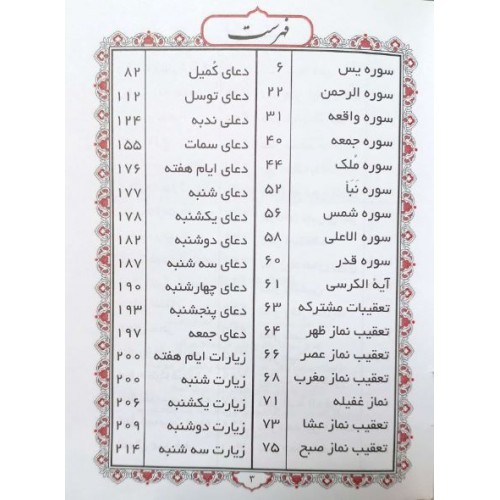 فهرست
سوره یس ۶
سوره الرحمن ۲۲
سوره واقعه ۳۱
سوره جمعه ۴۰
سوره مُلک ۴۴
سوره نَبَأ ۵۲
سوره شمس ۵۶
سوره الاعلی ۵۸
سوره قدر ۶۰
آیة الکرسی ۶۱
تعقیبات مشترکه ۶۳
تعقیب نماز ظهر ۶۴
تعقیب نماز عصر ۶۶
تعقیب نماز مغرب ۶۸
نماز غفیله ۷۱
تعقیب نماز عشا ۷۳
تعقیب نماز صبح ۷۵
دعای کُمیل ۸۲
دعای توسل ۱۱۲
دعلی ندبه ۱۲۴
دعای سمات ۱۵۵
دعای ایام هفته ۱۷۶
دعای شنبه ۱۷۷
دعای یکشنبه ۱۷۸
دعای دوشنبه ۱۸۲
دعای سه شنبه ۱۸۷
دعای چهارشنبه ۱۹۰
دعای پنجشنبه ۱۹۳
دعای جمعه ۱۹۷
زیارات ایام هفته ۲۰۰
زیارت شنبه ۲۰۰
زیارت یکشنبه ۲۰۶
زیارت دوشنبه ۲۰۹
زیارت سه شنبه ۲۱۴
۳